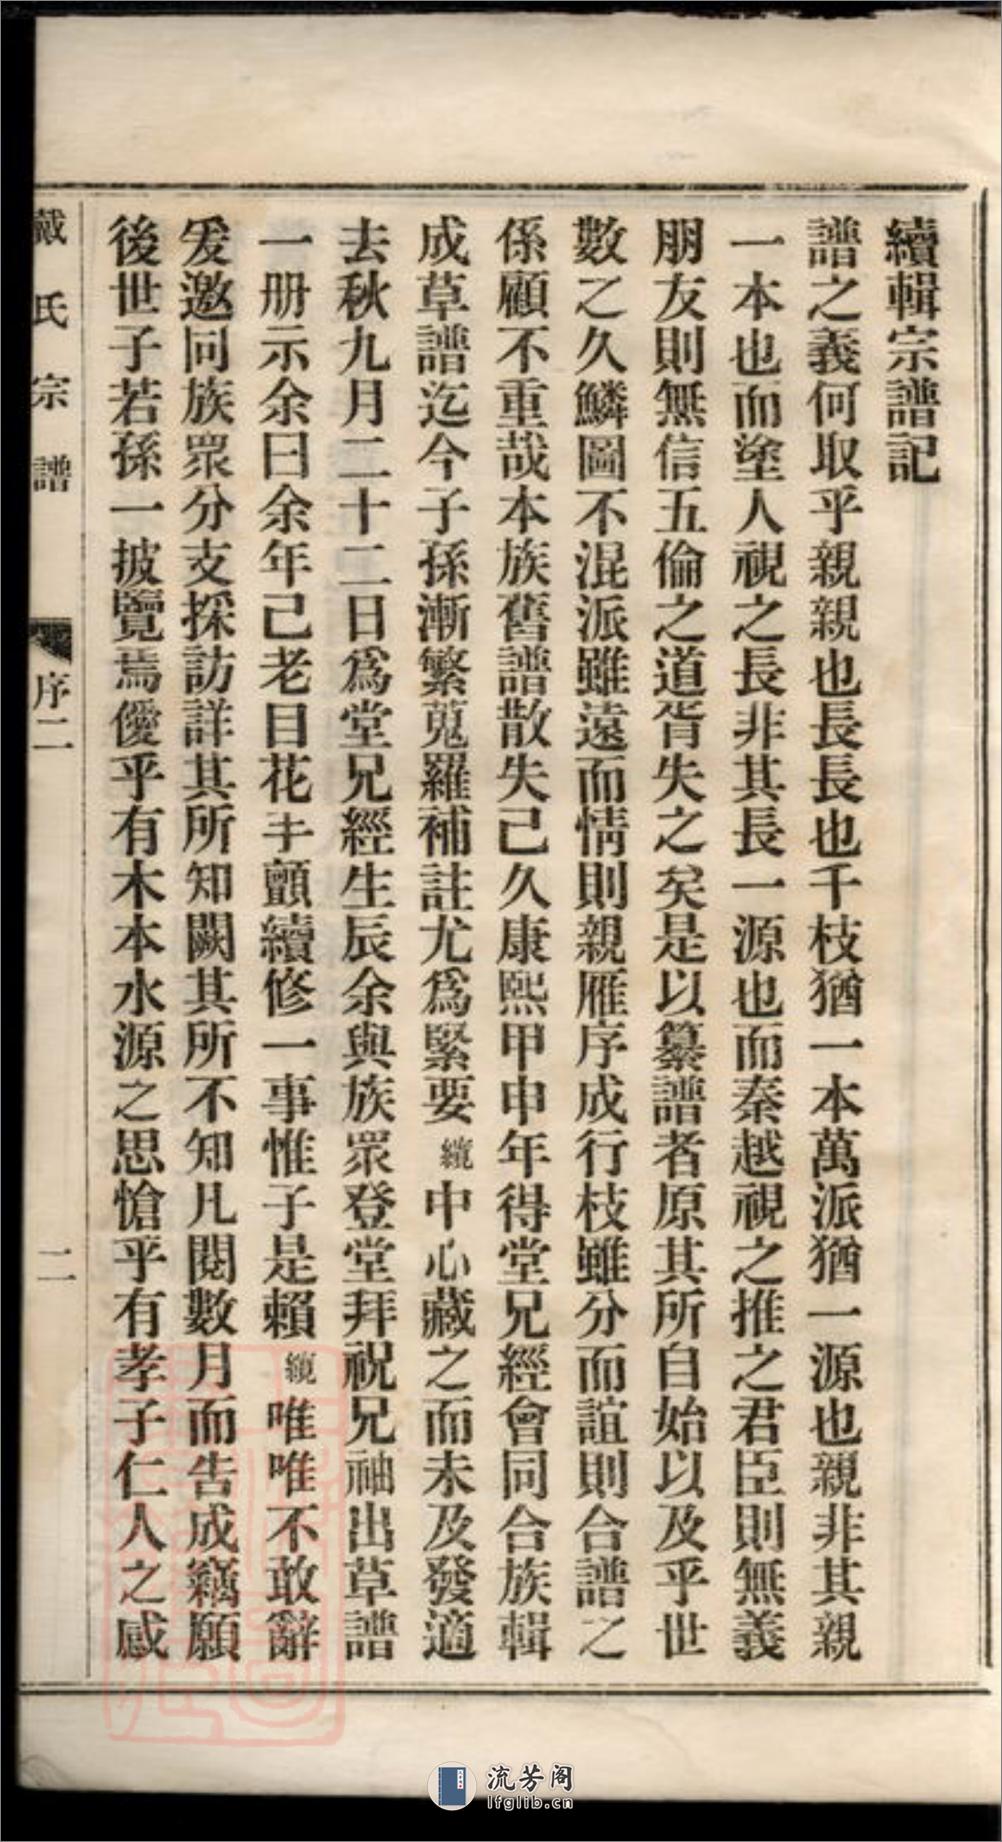 續輯宗譜記
譜之義何取乎親親也長長也千枝猶一本萬派猶一源也親非其親
一本也而塗人視之長非其長一源也而秦越視之推之君臣則無義
朋友則無信五倫之道胥失之矣是以纂譜者原其所自始以及乎世
數之久鱗圖不混派雖遠而情則親雁序成行枝雖分而誼則合譜之
係顧不重哉本族舊譜散失己久康熙甲申年得堂兄經會同合族輯
成草譜迄今子孫漸繁蒐羅補註尤為緊要纘中心藏之而未及發適
去秋九月二十二日為堂兄經生辰余與族眾登堂拜祝兄袖出草譜
一册示余曰余年己老目花手顫續修一事惟子是賴纘唯唯不敢辭
爰邀同族眾分支採訪詳其所知闕其所不知凡閱數月而告成竊願
後世子若孫一披覽焉僾乎有木本水源之思愴乎有孝子仁人之感
戴氏宗譜
序二
二
流芳阁
lfglib.cn